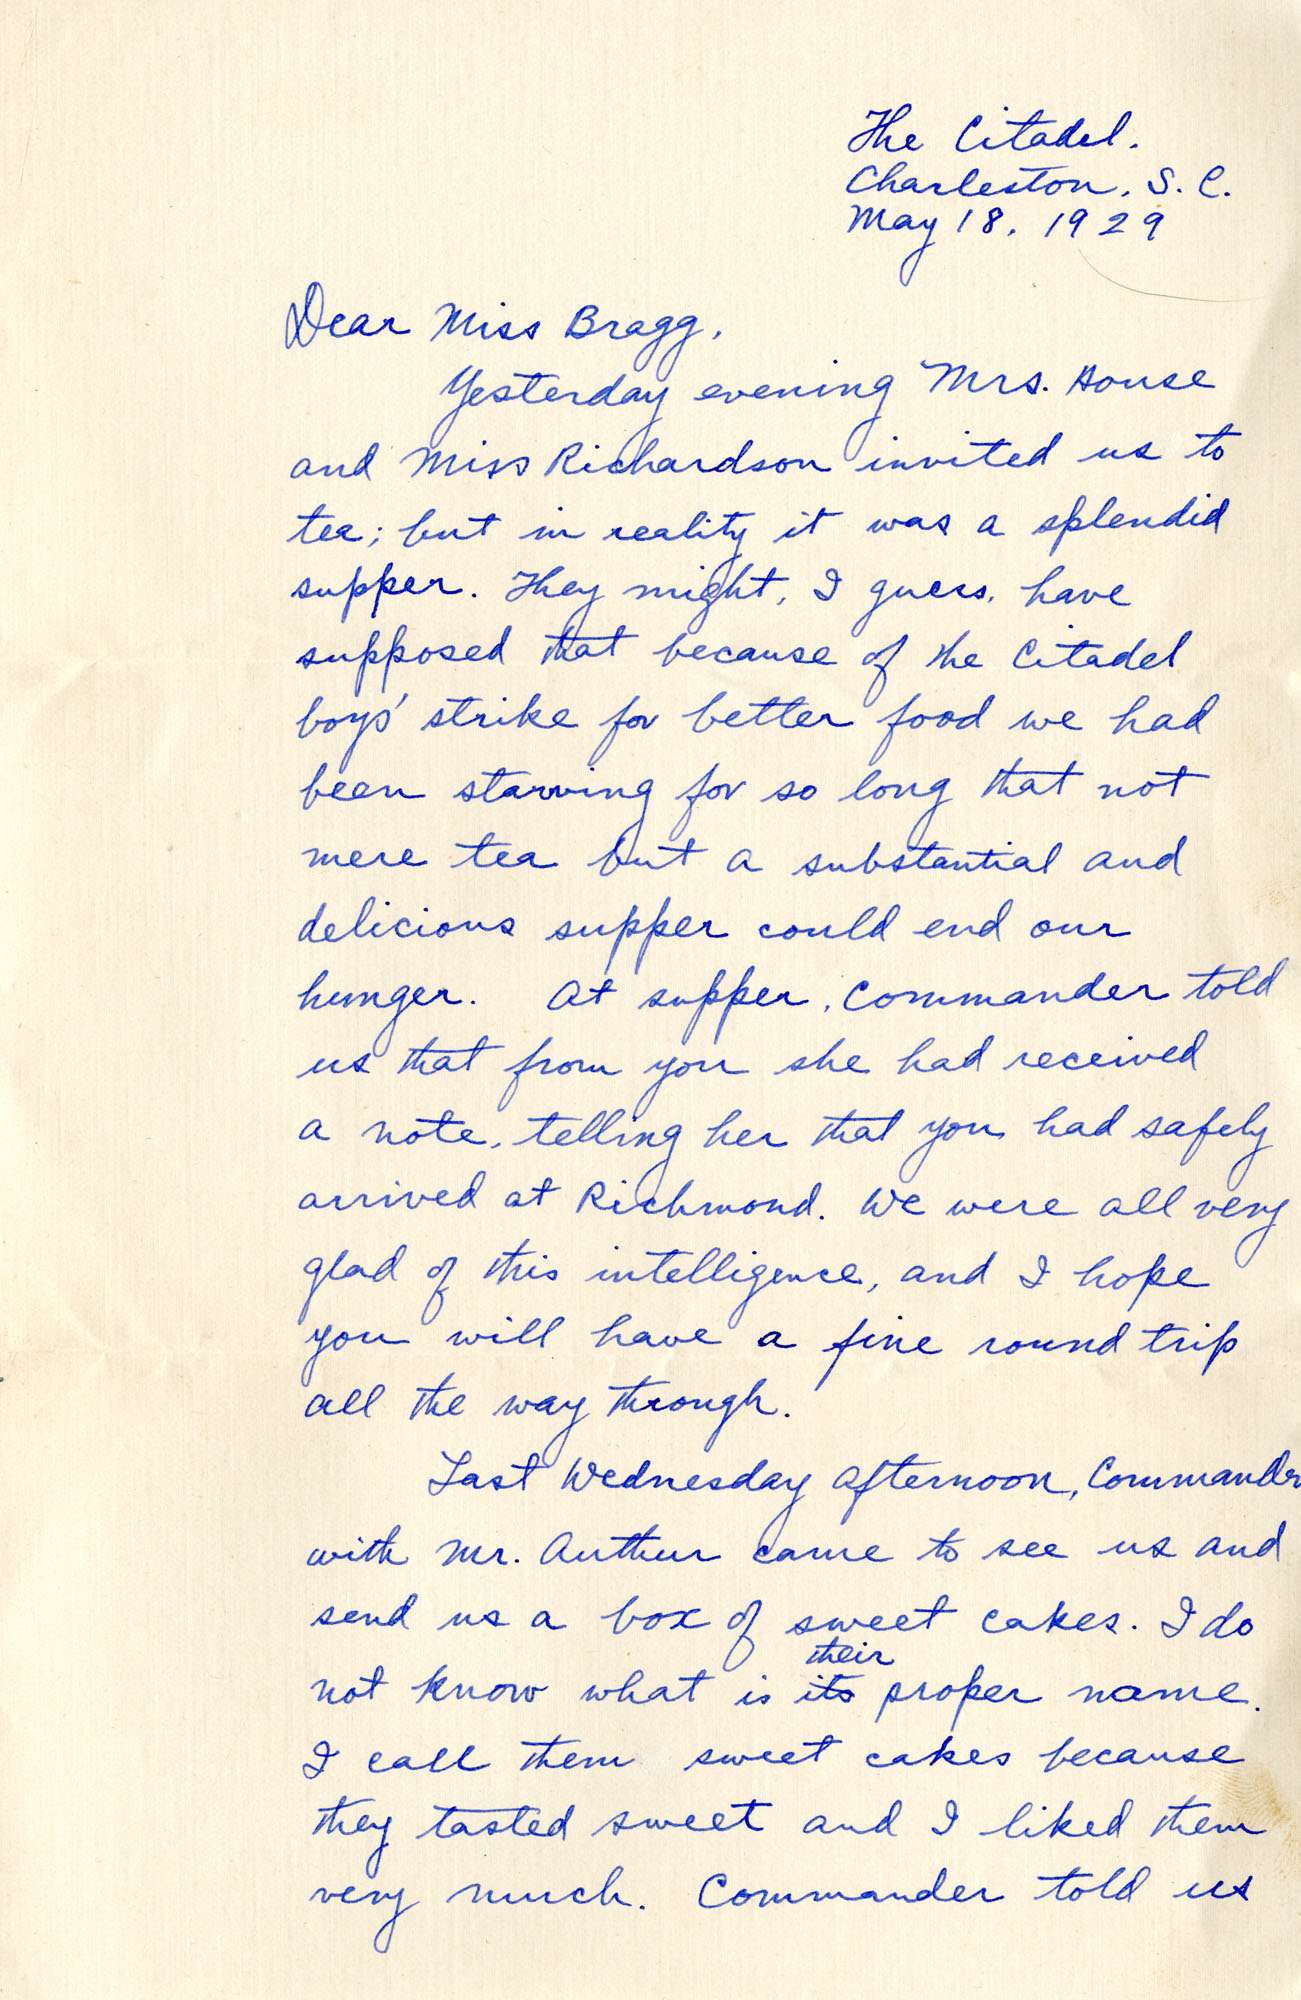 The Citadel.
Charleston, S. C.
May 18, 1929
Dear Miss Bragg,
Yesterday evening Mrs. House
and Miss Richardson invited us to
tea; but in reality it was a splendid
supper. They might, I guess, have
supposed that because of the Citadel
boys' strike for better food we had
been starving for so long that not
mere tea but a substantial and
delicious supper could end our
hunger. At supper, Commander told
us that from you she had received
a note, telling her that you had safely
arrived at Richmond. We were all very
glad of this intelligence, and I hope
you will have a fine round trip
all the way through.
Last Wednesday afternoon, Commander
with Mr. Authur came to see us and
send us a box of sweet cakes. I do
their
not know what is its proper name.
I call them sweet cakes because
they tasted sweet and I liked them
very much. Commander told us